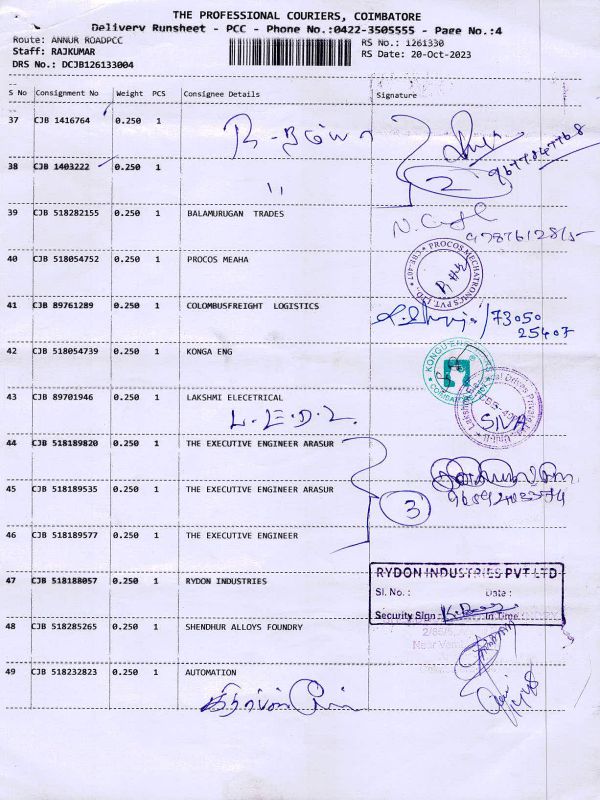 THE PROFESSIONAL COURIERS, COIMBATORE
Delivery Runsheet - PCC - Phone No.:0422-3505555 - Page No.:4
Route: ANNUR ROADPCC
RS No.: 1261330
Staff: RAJKUMAR
RS Date: 20-Oct-2023
DRS No.: DCJB126133004
S No Consignment No Weight PCS Consignee Details Signature
37 CJB 1416764 0.250 1
38 CJB 1403222 0.250 1
2
39 CJB 518282155 0.250 1 BALAMURUGAN TRADES
40 CJB 518054752 0.250 1 PROCOS MEAHA
PROCOS MECHATRONICS PVT. LTD. CBE-407
41 CJB 89761289 0.250 1 COLOMBUSFREIGHT LOGISTICS
73050
25407
42 CJB 518054739 0.250 1 KONGA ENG
43 CJB 89701946 0.250 1 LAKSHMI ELECETRICAL
L.E.D.L.
SIVA
44 CJB 518189820 0.250 1 THE EXECUTIVE ENGINEER ARASUR
45 CJB 518189535 0.250 1 THE EXECUTIVE ENGINEER ARASUR
3
46 CJB 518189577 0.250 1 THE EXECUTIVE ENGINEER
47 CJB 518188057 0.250 1 RYDON INDUSTRIES
RYDON INDUSTRIES PVT LTD
Sl. No. : Date :
Security Sign : In Time
48 CJB 518285265 0.250 1 SHENDHUR ALLOYS FOUNDRY
49 CJB 518232823 0.250 1 AUTOMATION